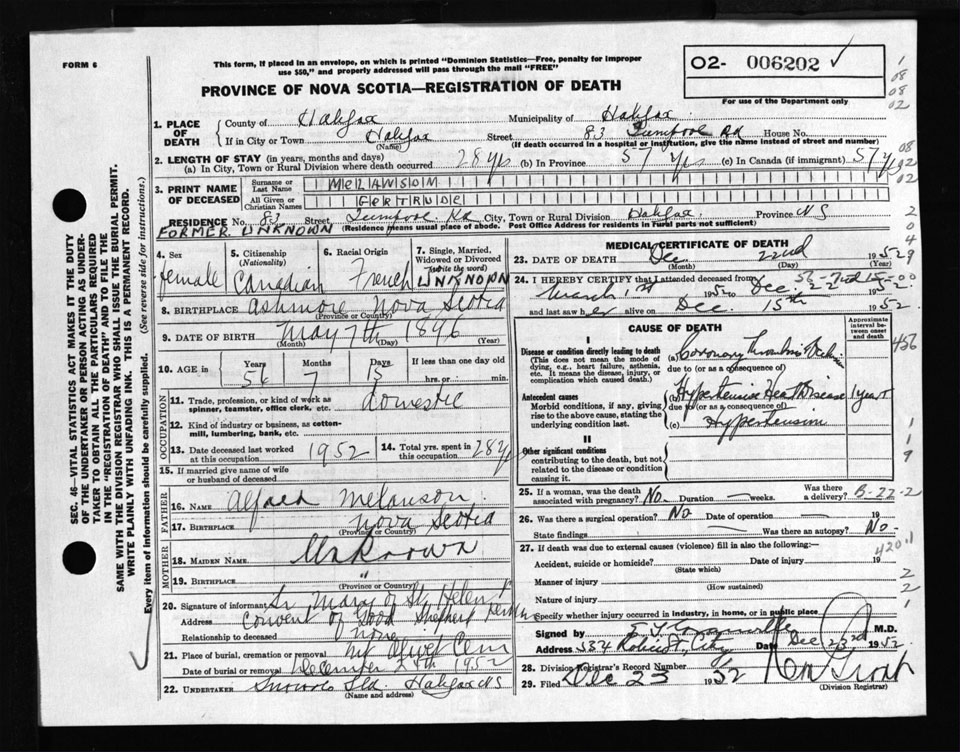 FORM 6
This form, if placed in an envelope, on which is printed "Dominion Statistics—Free, penalty for improper
use $50," and properly addressed will pass through the mail "FREE"
PROVINCE OF NOVA SCOTIA—REGISTRATION OF DEATH
O2- 006202
For use of the Department only
1. PLACE OF DEATH
County of Halifax Municipality of Halifax
If in City or Town Halifax Street 83 Rd House No.
(Name) (If death occurred in a hospital or institution, give the name instead of street and number)
2. LENGTH OF STAY (in years, months and days)
(a) In City, Town or Rural Division where death occurred 28 yrs (b) In Province 57 yrs (c) In Canada (if immigrant) 57 y
3. PRINT NAME OF DECEASED
Surname or Last Name MELANSON
All Given or Christian Names GERTRUDE
RESIDENCE No. 83 Street Rd City, Town or Rural Division Halifax Province NS
FORMER UNKNOWN (Residence means usual place of abode. Post Office Address for residents in rural parts not sufficient)
4. Sex female
5. Citizenship (Nationality) Canadian
6. Racial Origin French
7. Single, Married, Widowed or Divorced (write the word) UNKNOWN
8. BIRTHPLACE Ashmore Nova Scotia
(Province or Country)
9. DATE OF BIRTH May 7th 1896
(Month) (Day) (Year)
10. AGE in Years Months Days If less than one day old
56 7 15 hrs. or min.
OCCUPATION
11. Trade, profession, or kind of work as
spinner, teamster, office clerk, etc. domestic
12. Kind of industry or business, as cotton-
mill, lumbering, bank, etc.
13. Date deceased last worked at this occupation 1952
14. Total yrs. spent in this occupation 28 yrs
15. If married give name of wife
or husband of deceased
FATHER
16. NAME Alfred Melanson
17. BIRTHPLACE Nova Scotia
(Province or Country)
MOTHER
18. MAIDEN NAME Unknown
19. BIRTHPLACE "
(Province or Country)
20. Signature of informant Sr Mary of St Helen
Address Convent of Good Shepherd
Relationship to deceased none
21. Place of burial, cremation or removal Mt Olivet Cem
Date of burial or removal December 24th 1952
22. UNDERTAKER Snows Ltd. Halifax NS
(Name and address)
MEDICAL CERTIFICATE OF DEATH
23. DATE OF DEATH Dec. 22nd 1952
(Month) (Day) (Year)
24. I HEREBY CERTIFY that I attended deceased from
March 1st 1952 to Dec. 22nd 1952
and last saw her alive on Dec. 15th 1952
CAUSE OF DEATH
Approximate interval between onset and death
I
Disease or condition directly leading to death
(This does not mean the mode of
dying, e.g., heart failure, asthenia,
etc. It means the disease, injury, or
complication which caused death.)
(a) Coronary Thrombosis
due to (or as a consequence of)
Antecedent causes
Morbid conditions, if any, giving
rise to the above cause, stating the
underlying condition last.
(b) Hypertensive Heart Disease 1 year
due to (or as a consequence of)
(c) Hypertension
II
Other significant conditions
contributing to the death, but not
related to the disease or condition
causing it.
25. If a woman, was the death
associated with pregnancy? No. Duration weeks. Was there a delivery? B-22-2
26. Was there a surgical operation? No Date of operation 19
State findings Was there an autopsy? No.
27. If death was due to external causes (violence) fill in also the following:—
Accident, suicide or homicide? Date of injury 19
(State which)
Manner of injury
(How sustained)
Nature of injury
Specify whether injury occurred in industry, in home, or in public place
Signed by M.D.
Address 334 Robie St, City Date Dec 23rd 1952
28. Division Registrar's Record Number
29. Filed Dec 23 1952
(Division Registrar)
SEC. 46—VITAL STATISTICS ACT MAKES IT THE DUTY
OF THE UNDERTAKER OR PERSON ACTING AS UNDER-
TAKER TO OBTAIN ALL THE PARTICULARS REQUIRED
IN THE "REGISTRATION OF DEATH" AND TO FILE THE
SAME WITH THE DIVISION REGISTRAR WHO SHALL ISSUE THE BURIAL PERMIT.
WRITE PLAINLY WITH UNFADING INK. THIS IS A PERMANENT RECORD.
Every item of information should be carefully supplied. (See reverse side for instructions.)